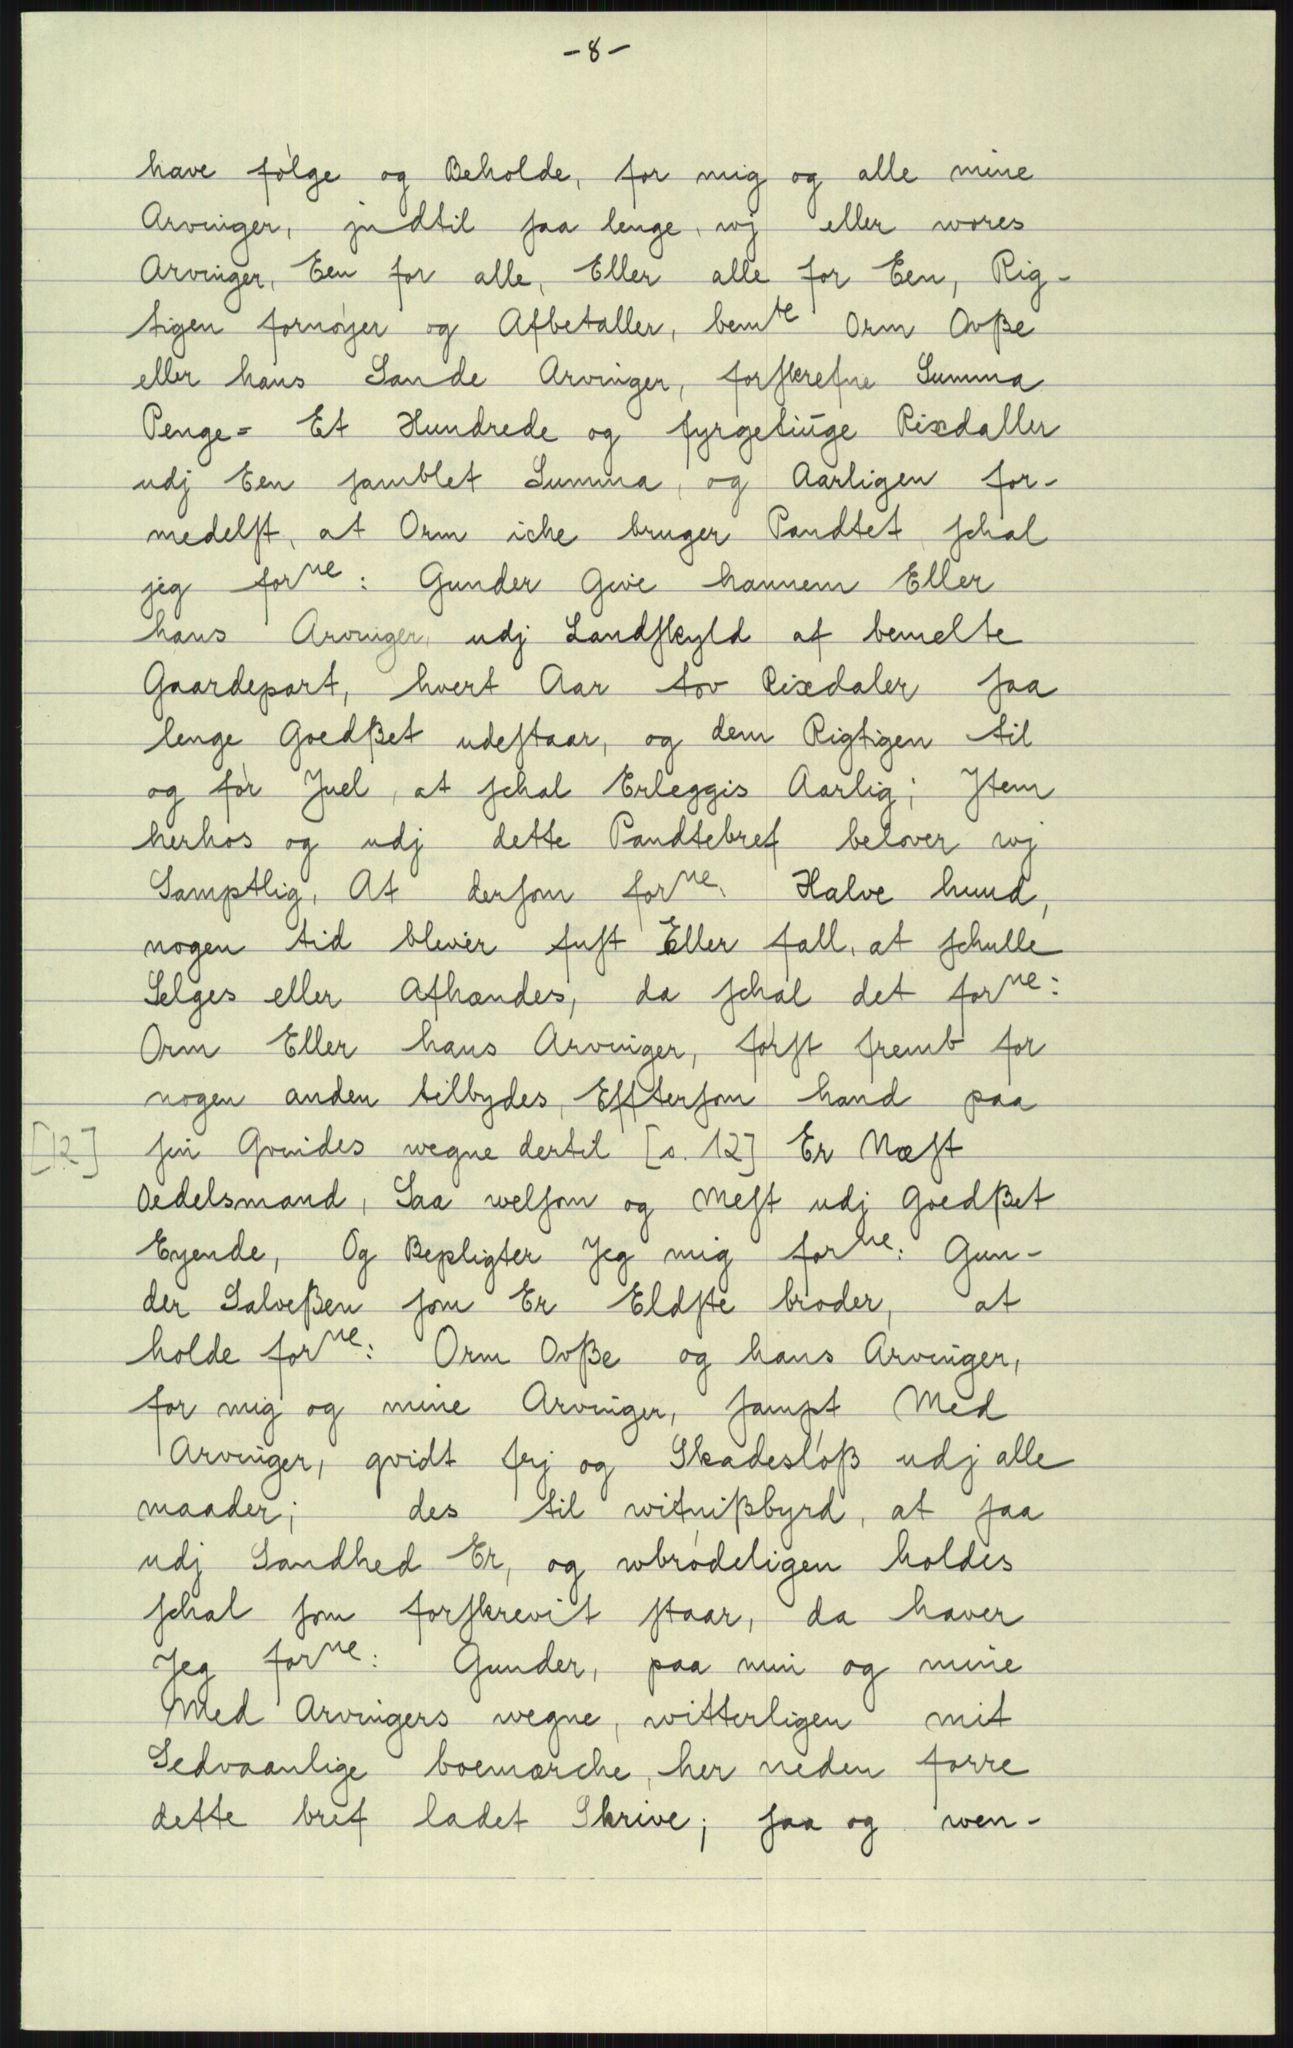 -8-
have følge og Beholde, for mig og alle mine
Arvinger, jndtil saa lenge, wj eller wores
Arvinger, Een for alle, Eller alle for Een, Rig-
tigen fornøjer og Afbetaller, bemte Orm Ovße
eller hans Sande Arvinger, forskrefne Summa
Penge= Et Hundrede og fyrgetiuge Rixdaller
udj Een samblet Summa, og Aarligen for-
medelst, at Orm iche bruger Pandtet schal
jeg forne: Gunder Give hannem Eller
hans Arvinger, udj Landskyld af bemelte
Gaardepart, hvert Aar tov Rixdaler saa
lenge Goedßet udestaar, og dem Rigtigen til
og før Juel, at schal Erleggis Aarlig; Jtem
herhos og udj dette Pandtebref belover wj
Samptlig, At dersom forne. Halve hund,
nogen tid blever fust Eller fall, at schulle
Selges eller Afhændes, da schal det forne:
Orm Eller hans Arvinger, først fremb for
nogen anden tilbydes, Efftersom hand paa
[12] sin Qvindes wegne dertil [s. 12] Er Næst
Oedelsmand, Saa welsom og Mest udj Goedßet
Eyende, Og Bepligter Jeg mig forne: Gun-
der Salveßen som Er Eldste broder, at
holde forne: Orm Ovße og hans Arvinger,
for mig og mine Arvinger, sampt Med
Arvinger, qvidt frj og Skadesløß udj alle
maader; des til witnißbyrd, at saa
udj Sandhed Er, og wbrødeligen holdes
schal som forskrevit staar, da haver
Jeg forne: Gunder, paa min og mine
Med Arvingers wegne, witterligen mit
Sedvaanlige boemærche, her neden forre
dette bref ladet Skrive; saa og wen-